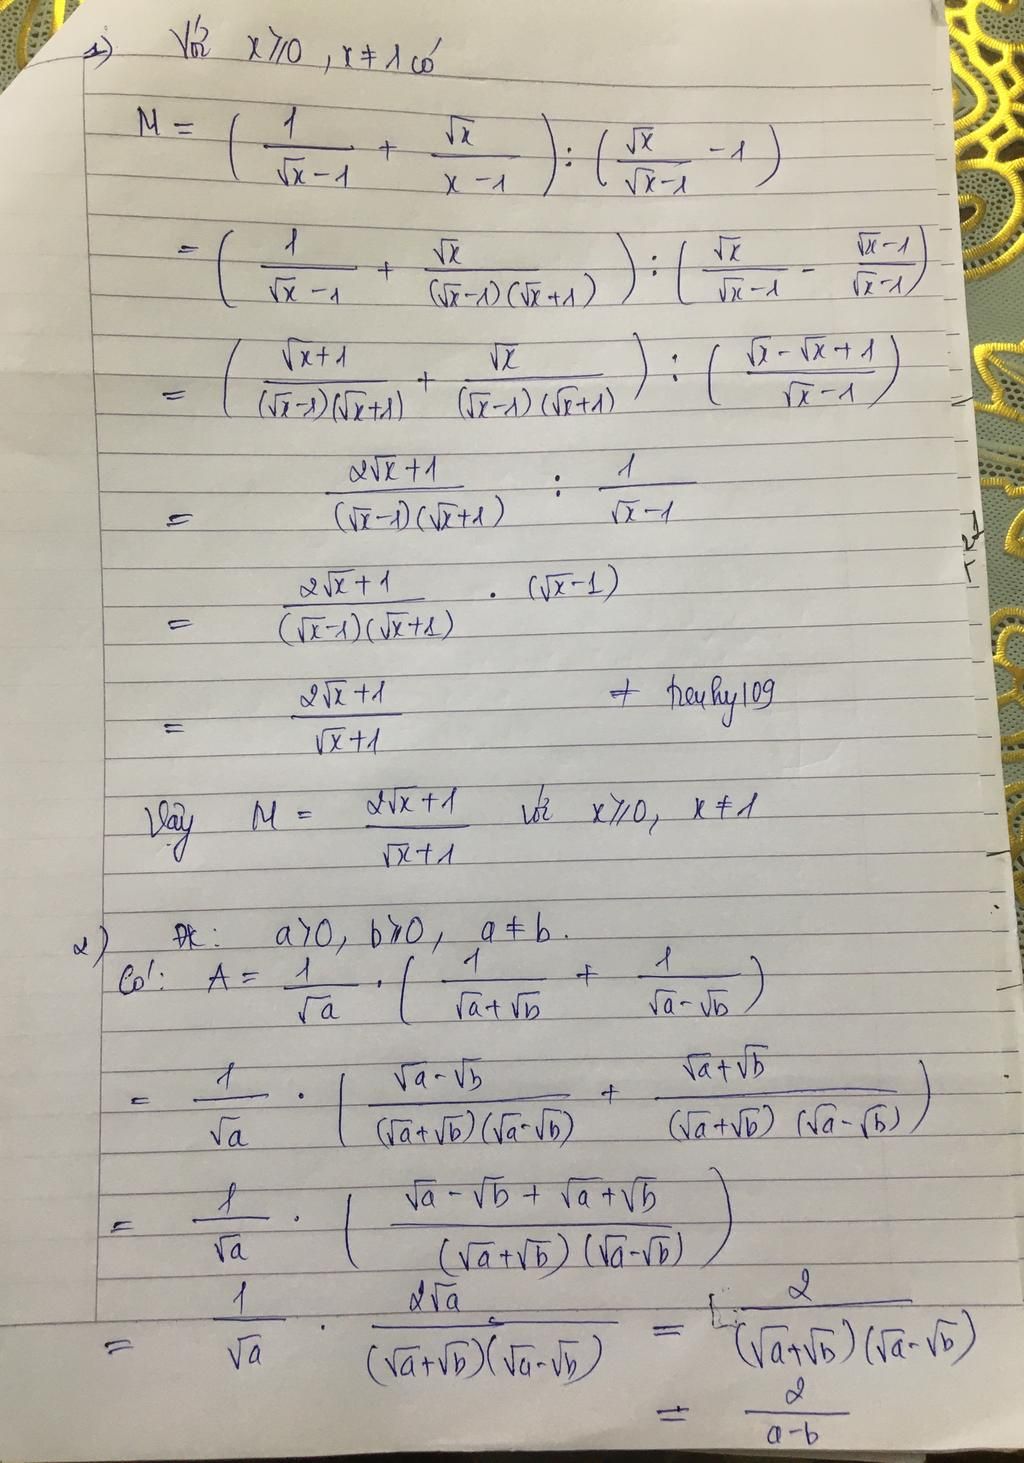 1) Với x ≥ 0, x ≠ 1 có
M = ( 1/(√x - 1) + √x/(x - 1) ) : ( √x/(√x - 1) - 1 )
= ( 1/(√x - 1) + √x/((√x - 1)(√x + 1)) ) : ( √x/(√x - 1) - (√x - 1)/(√x - 1) )
= ( (√x + 1)/((√x - 1)(√x + 1)) + √x/((√x - 1)(√x + 1)) ) : ( (√x - √x + 1)/(√x - 1) )
= (2√x + 1)/((√x - 1)(√x + 1)) : 1/(√x - 1)
= (2√x + 1)/((√x - 1)(√x + 1)) . (√x - 1)
= (2√x + 1)/(√x + 1)
Vậy M = (2√x + 1)/(√x + 1) với x ≥ 0, x ≠ 1
2) ĐK: a > 0, b ≥ 0, a ≠ b.
Có: A = 1/√a . ( 1/(√a + √b) + 1/(√a - √b) )
= 1/√a . ( (√a - √b)/((√a + √b)(√a - √b)) + (√a + √b)/((√a + √b)(√a - √b)) )
= 1/√a . ( (√a - √b + √a + √b)/((√a + √b)(√a - √b)) )
= 1/√a . 2√a/((√a + √b)(√a - √b)) = 2/((√a + √b)(√a - √b))
= 2/(a - b)